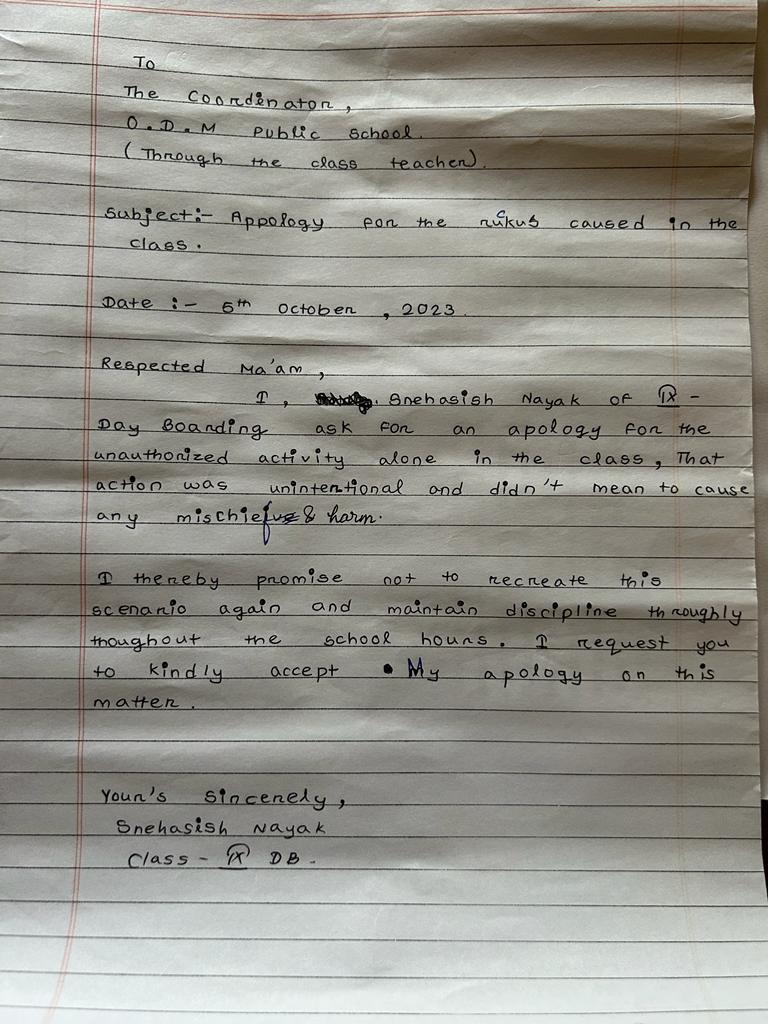 To
The Coordinator,
O.D.M Public School.
(Through the class teacher).
Subject:- Appology for the ruckus caused in the
class.
Date :- 5th October, 2023.
Respected Ma'am,
I, Snehasish Nayak of IX -
Day Boarding ask for an apology for the
unauthorized activity alone in the class, That
action was unintentional and didn't mean to cause
any mischief & harm.
I thereby promise not to recreate this
scenario again and maintain discipline throughly
thoughout the school hours. I request you
to kindly accept My apology on this
matter.
Your's sincerely,
Snehasish Nayak
Class - IX DB.